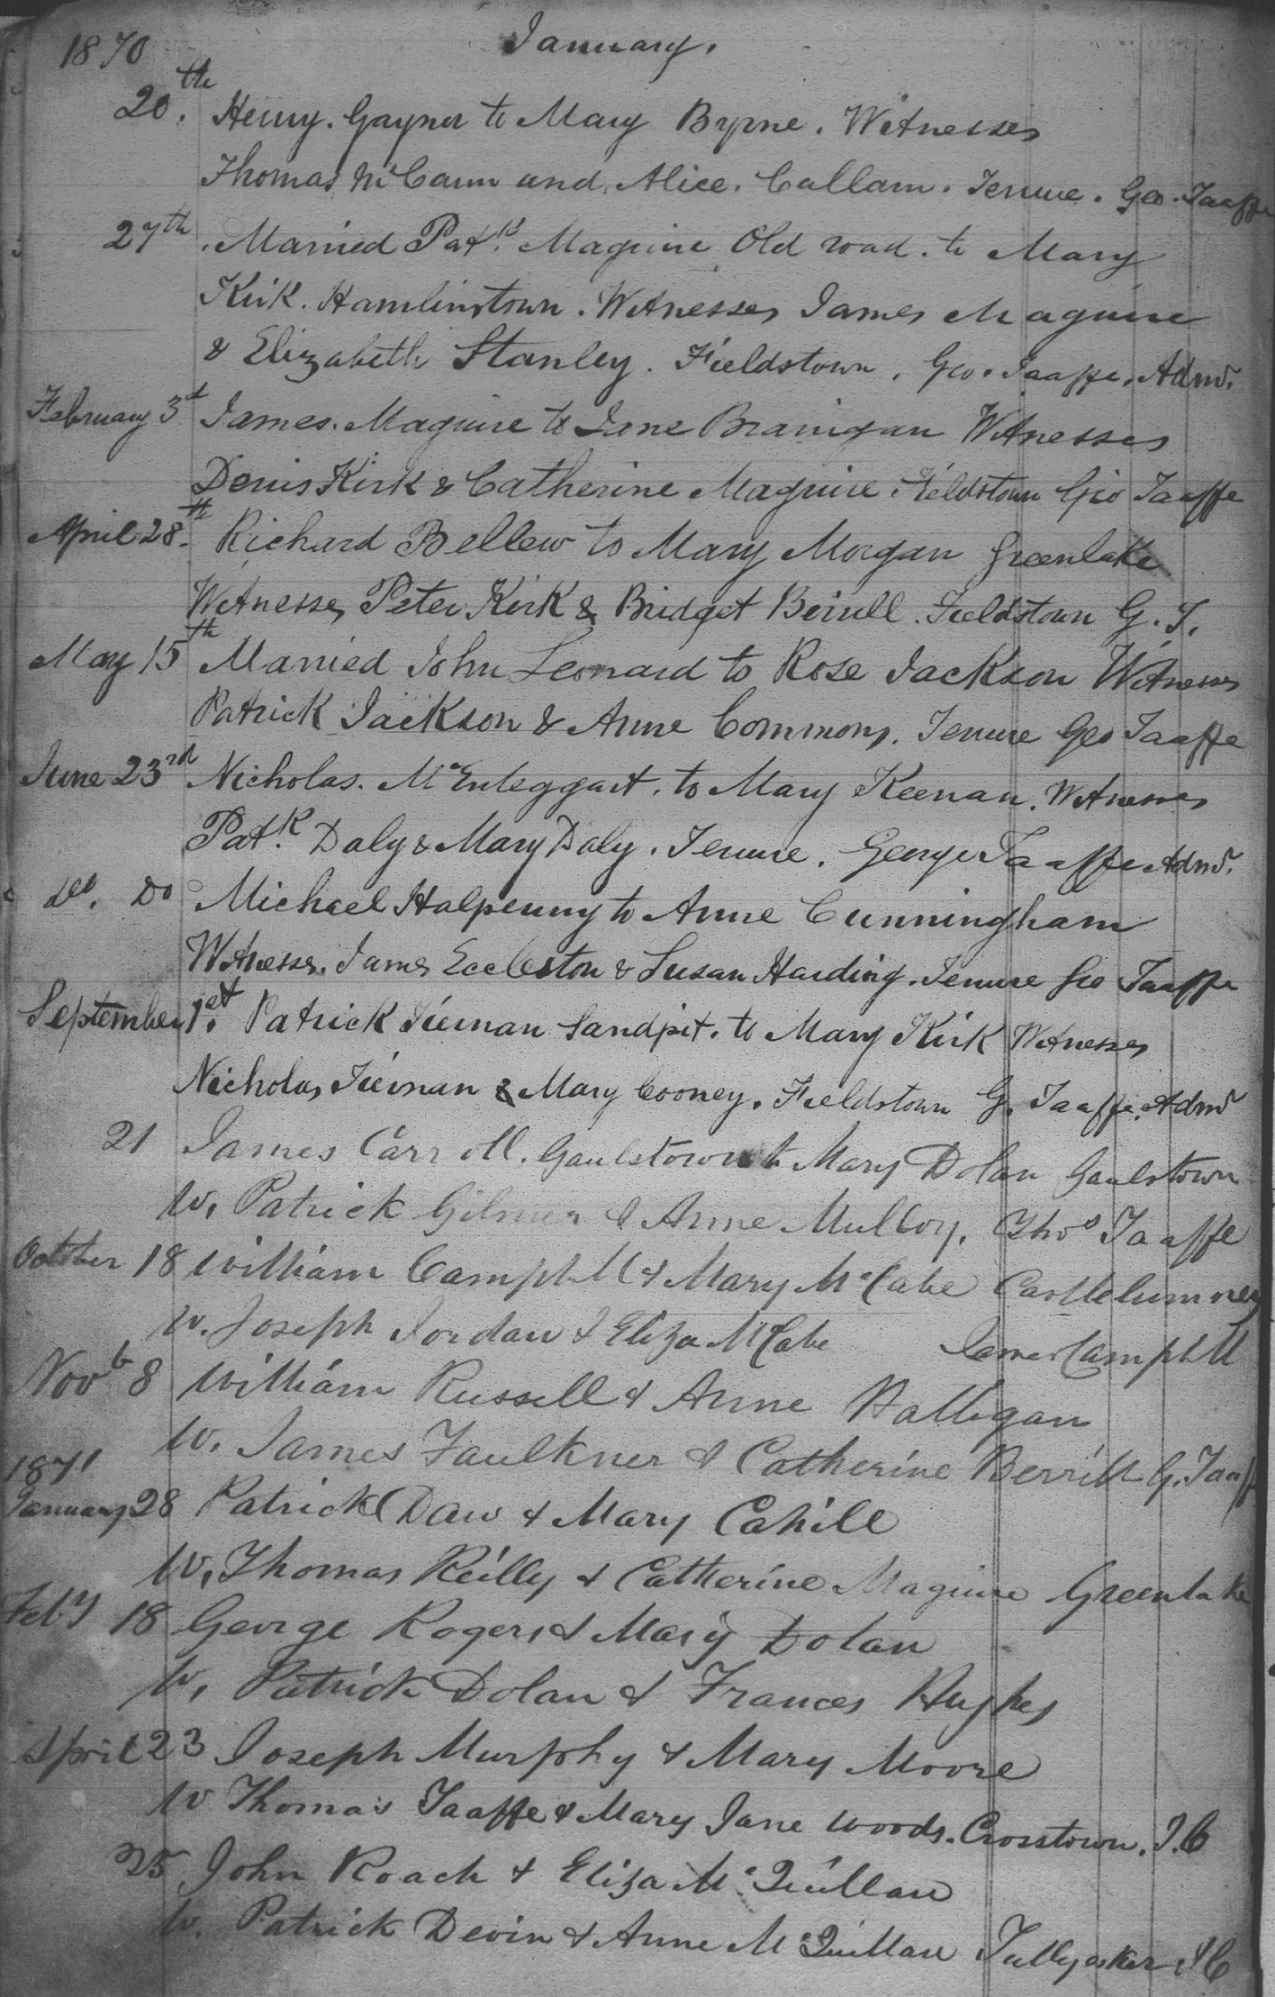 1870 January.
20th. Henry. Gayner to Mary Byrne. Witnesses
Thomas McCann and Alice. Callam. Tenure. Geo. Taaffe
27th. Married Patk. Maguire Old road. to Mary
Kirk. Hamlinstown. Witnesses James Maguire
& Elizabeth Stanley. Fieldstown. Geo. Taaffe. Admr.
February 3d James. Maguire to Jane Branigan Witnesses
Denis Kirk & Catherine Maguire. Fieldstown Geo Taaffe
April 28th. Richard Bellew to Mary Morgan Greenlake
Witnesses Peter Kirk & Bridget Beirell. Fieldstown G. T.
May 15th Married John Leonard to Rose Jackson Witnesses
Patrick Jackson & Anne Commons. Tenure Geo Taaffe
June 23rd Nicholas. McEnteggart. to Mary Keenan. Witnesses
Patk. Daly & Mary Daly. Tenure. George Taaffe Admr.
Do. Do Michael Halpenny to Anne Cunningham
Witnesses. James Eccleston & Susan Harding. Tenure Geo Taaffe
September 1st. Patrick Tiernan Sandpit. to Mary Kirk Witnesses
Nicholas Tiernan & Mary Cooney. Fieldstown G. Taaffe. Admr
21 James Carroll. Gaulstown to Mary Dolan Gaulstown
W. Patrick Gilmer & Anne Mulloy. Thos Taaffe
October 18 William Campbell & Mary McCabe Castlelumney
W. Joseph Jordan & Eliza McCabe James Campbell
Novb 8 William Russell & Anne Halligan
W. James Faulkner & Catherine Berrill G. Taaff
1871
January 28 Patrick Daw & Mary Cahill
W. Thomas Reilly & Catherine Maguire Greenlake
Feby 18 George Rogers & Mary Dolan
W. Patrick Dolan & Frances Hughes
April 23 Joseph Murphy & Mary Moore
W Thomas Taaffe & Mary Jane Woods. Crosstown. J.C
25 John Roach & Eliza McQuillan
W. Patrick Devin & Anne McQuillan Tullyesker JC